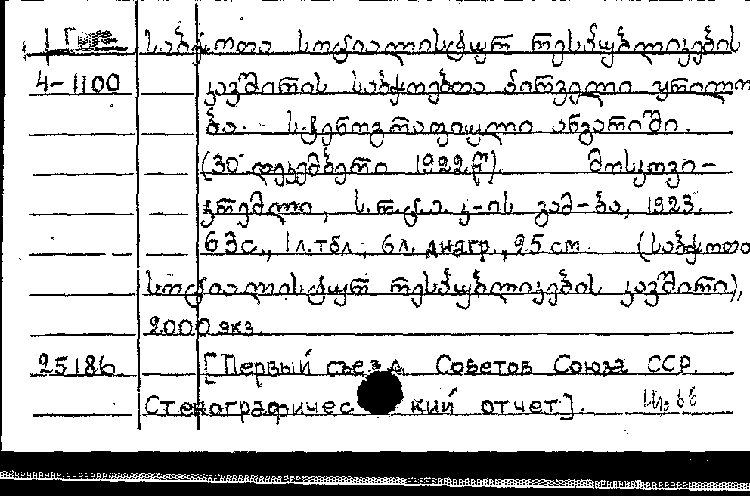 საბჭოთა სოციალისტურ რესპუბლიკების
4-1100 კავშირის საბჭოებთა პირველი ყრილო
ბა. სტენოგრაფიული ანგარიში.
(30 დეკემბერი 1922 წ). მოსკოვი-
კრემლი, ს.რ.ც.ა. კ-ის გამ-ბა, 1923.
63с., 1л.тбл., 6л. диагр., 25 см. (საბჭოთა
სოციალისტურ რესპუბლიკების კავშირი),
2000 экз.
25186 [Первый съезд Советов Союза ССР.
Стенографический отчет].